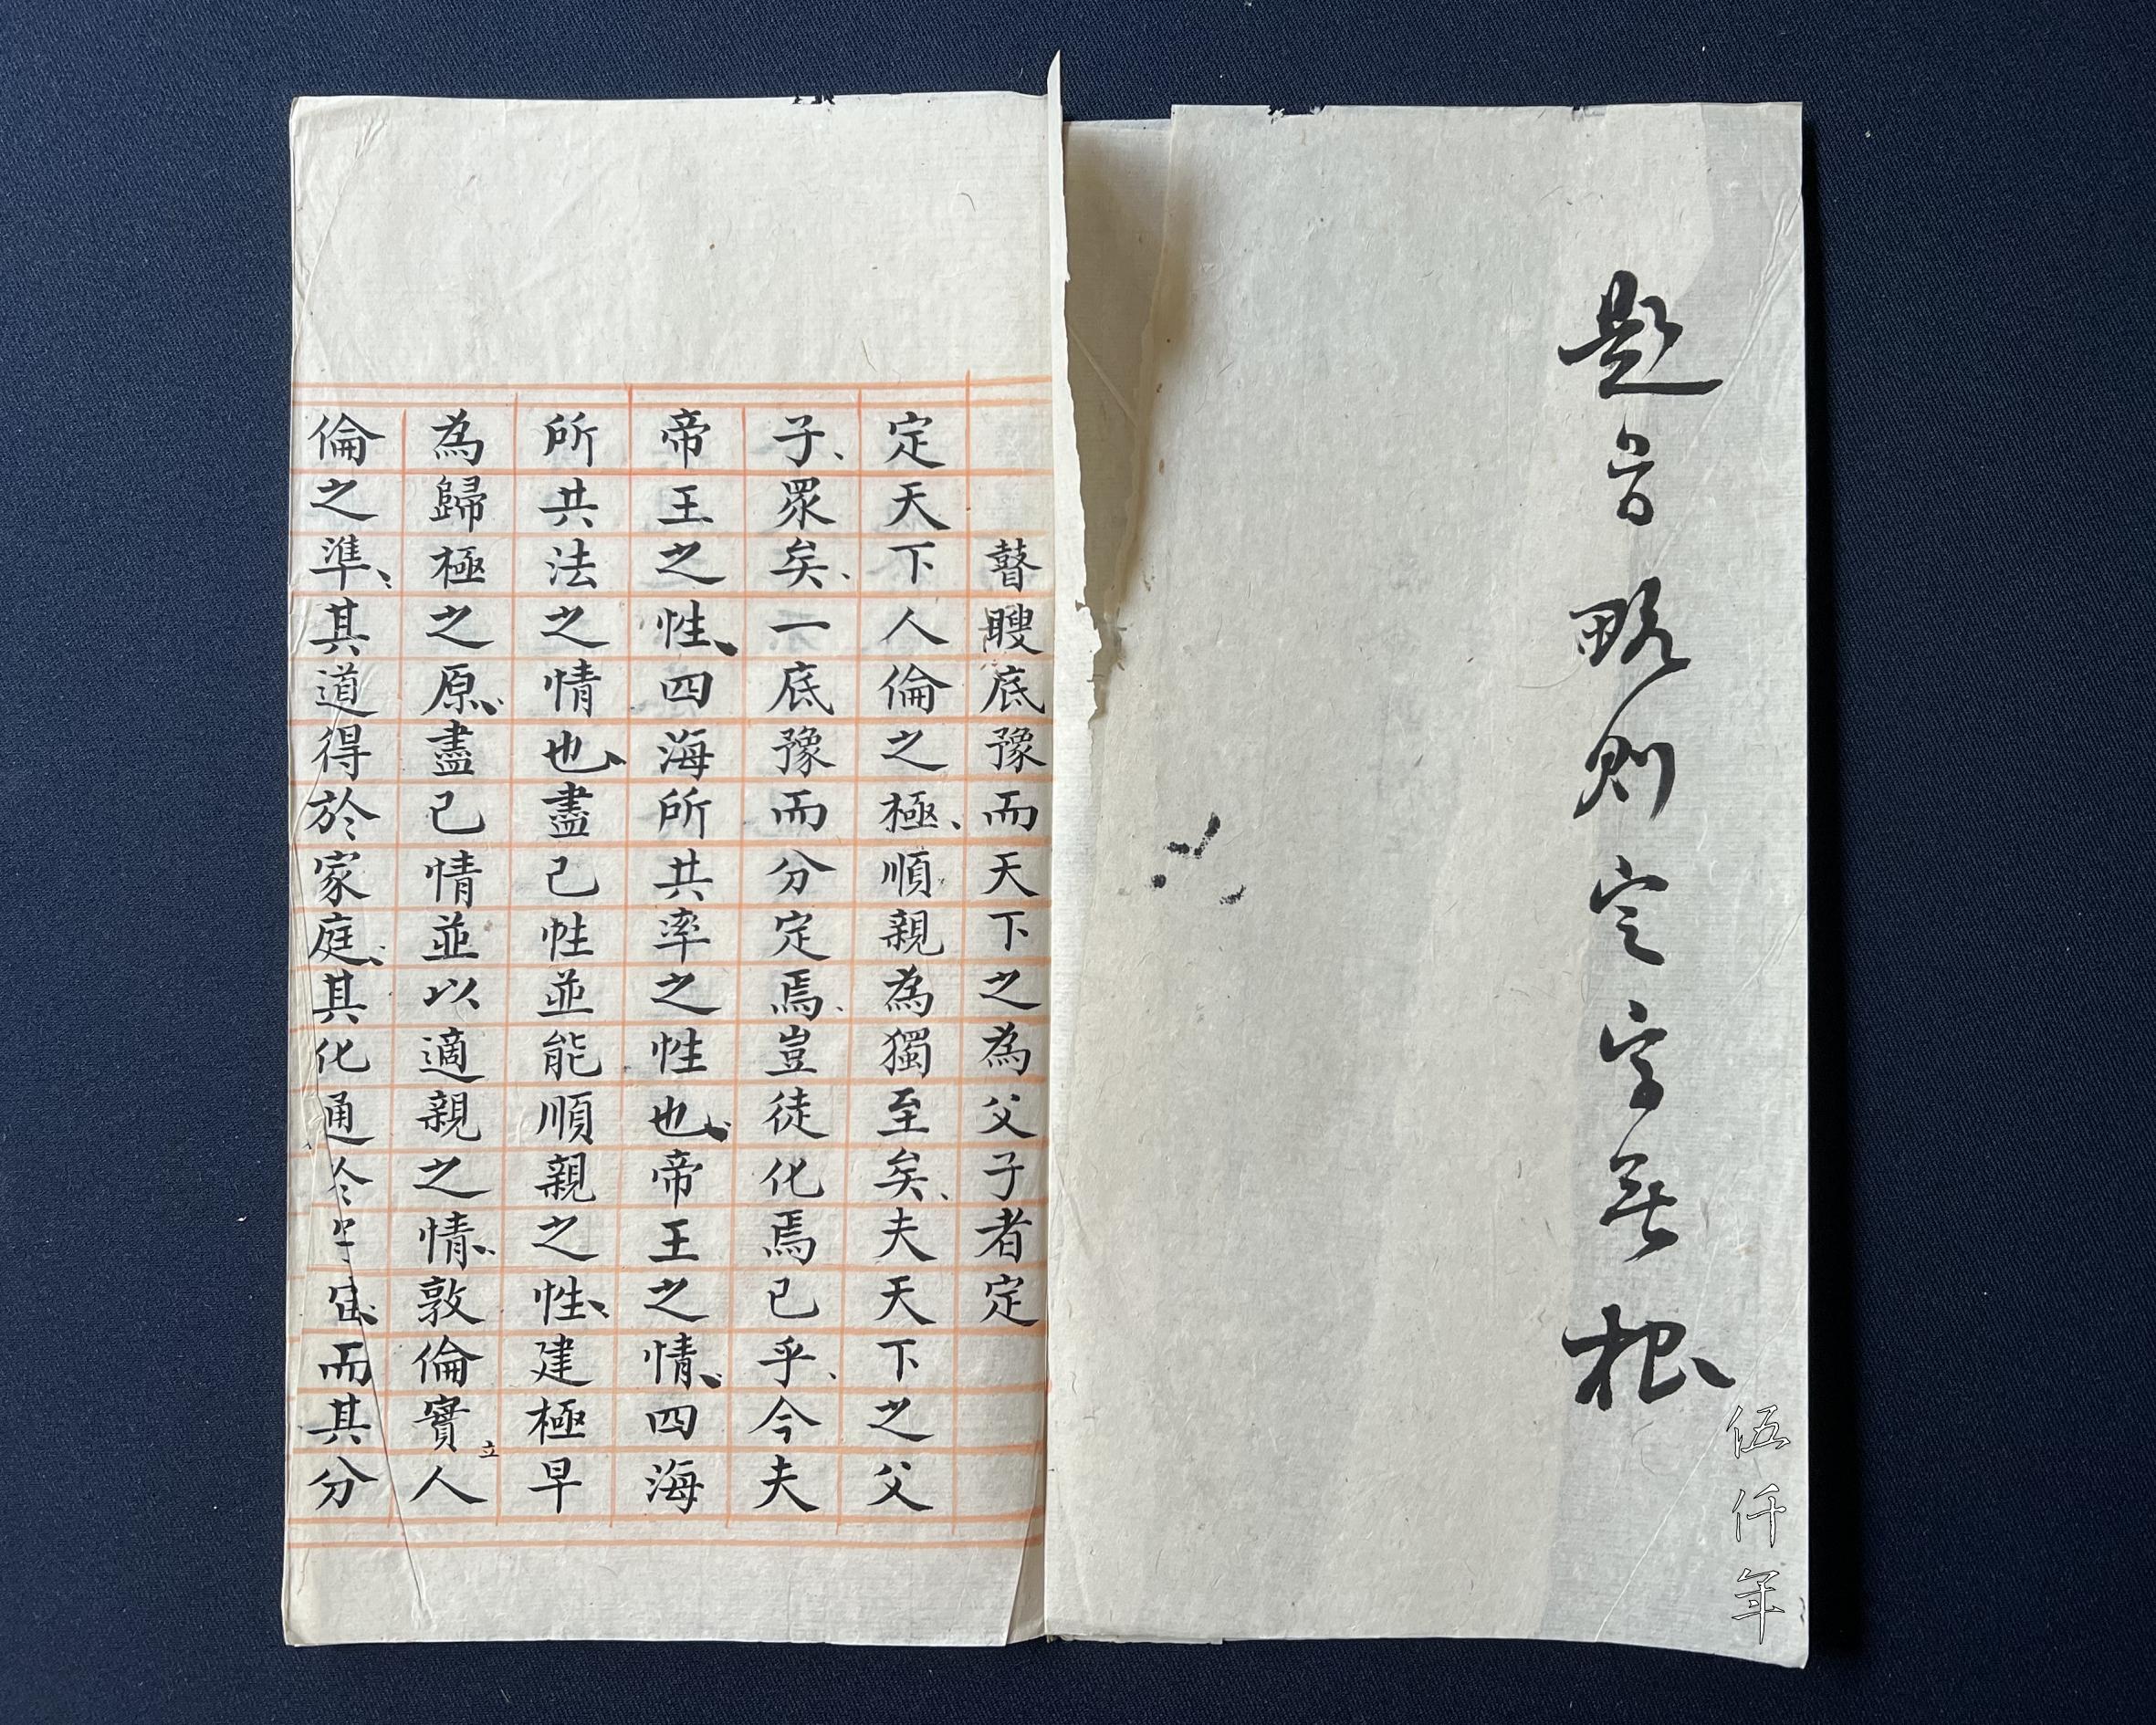 題旨略則定字無根
瞽瞍底豫而天下之為父子者定
定天下人倫之極、順親為獨至矣、夫天下之父
子、眾矣、一底豫而分定焉、豈徒化焉已乎、今夫
帝王之性、四海所共率之性也、帝王之情、四海
所共法之情也、盡己性並能順親之性、建極早
為歸極之原、盡己情並以適親之情、敦倫實立人
倫之準、其道得於家庭、其化通於宇宙、而其分
伍仟年